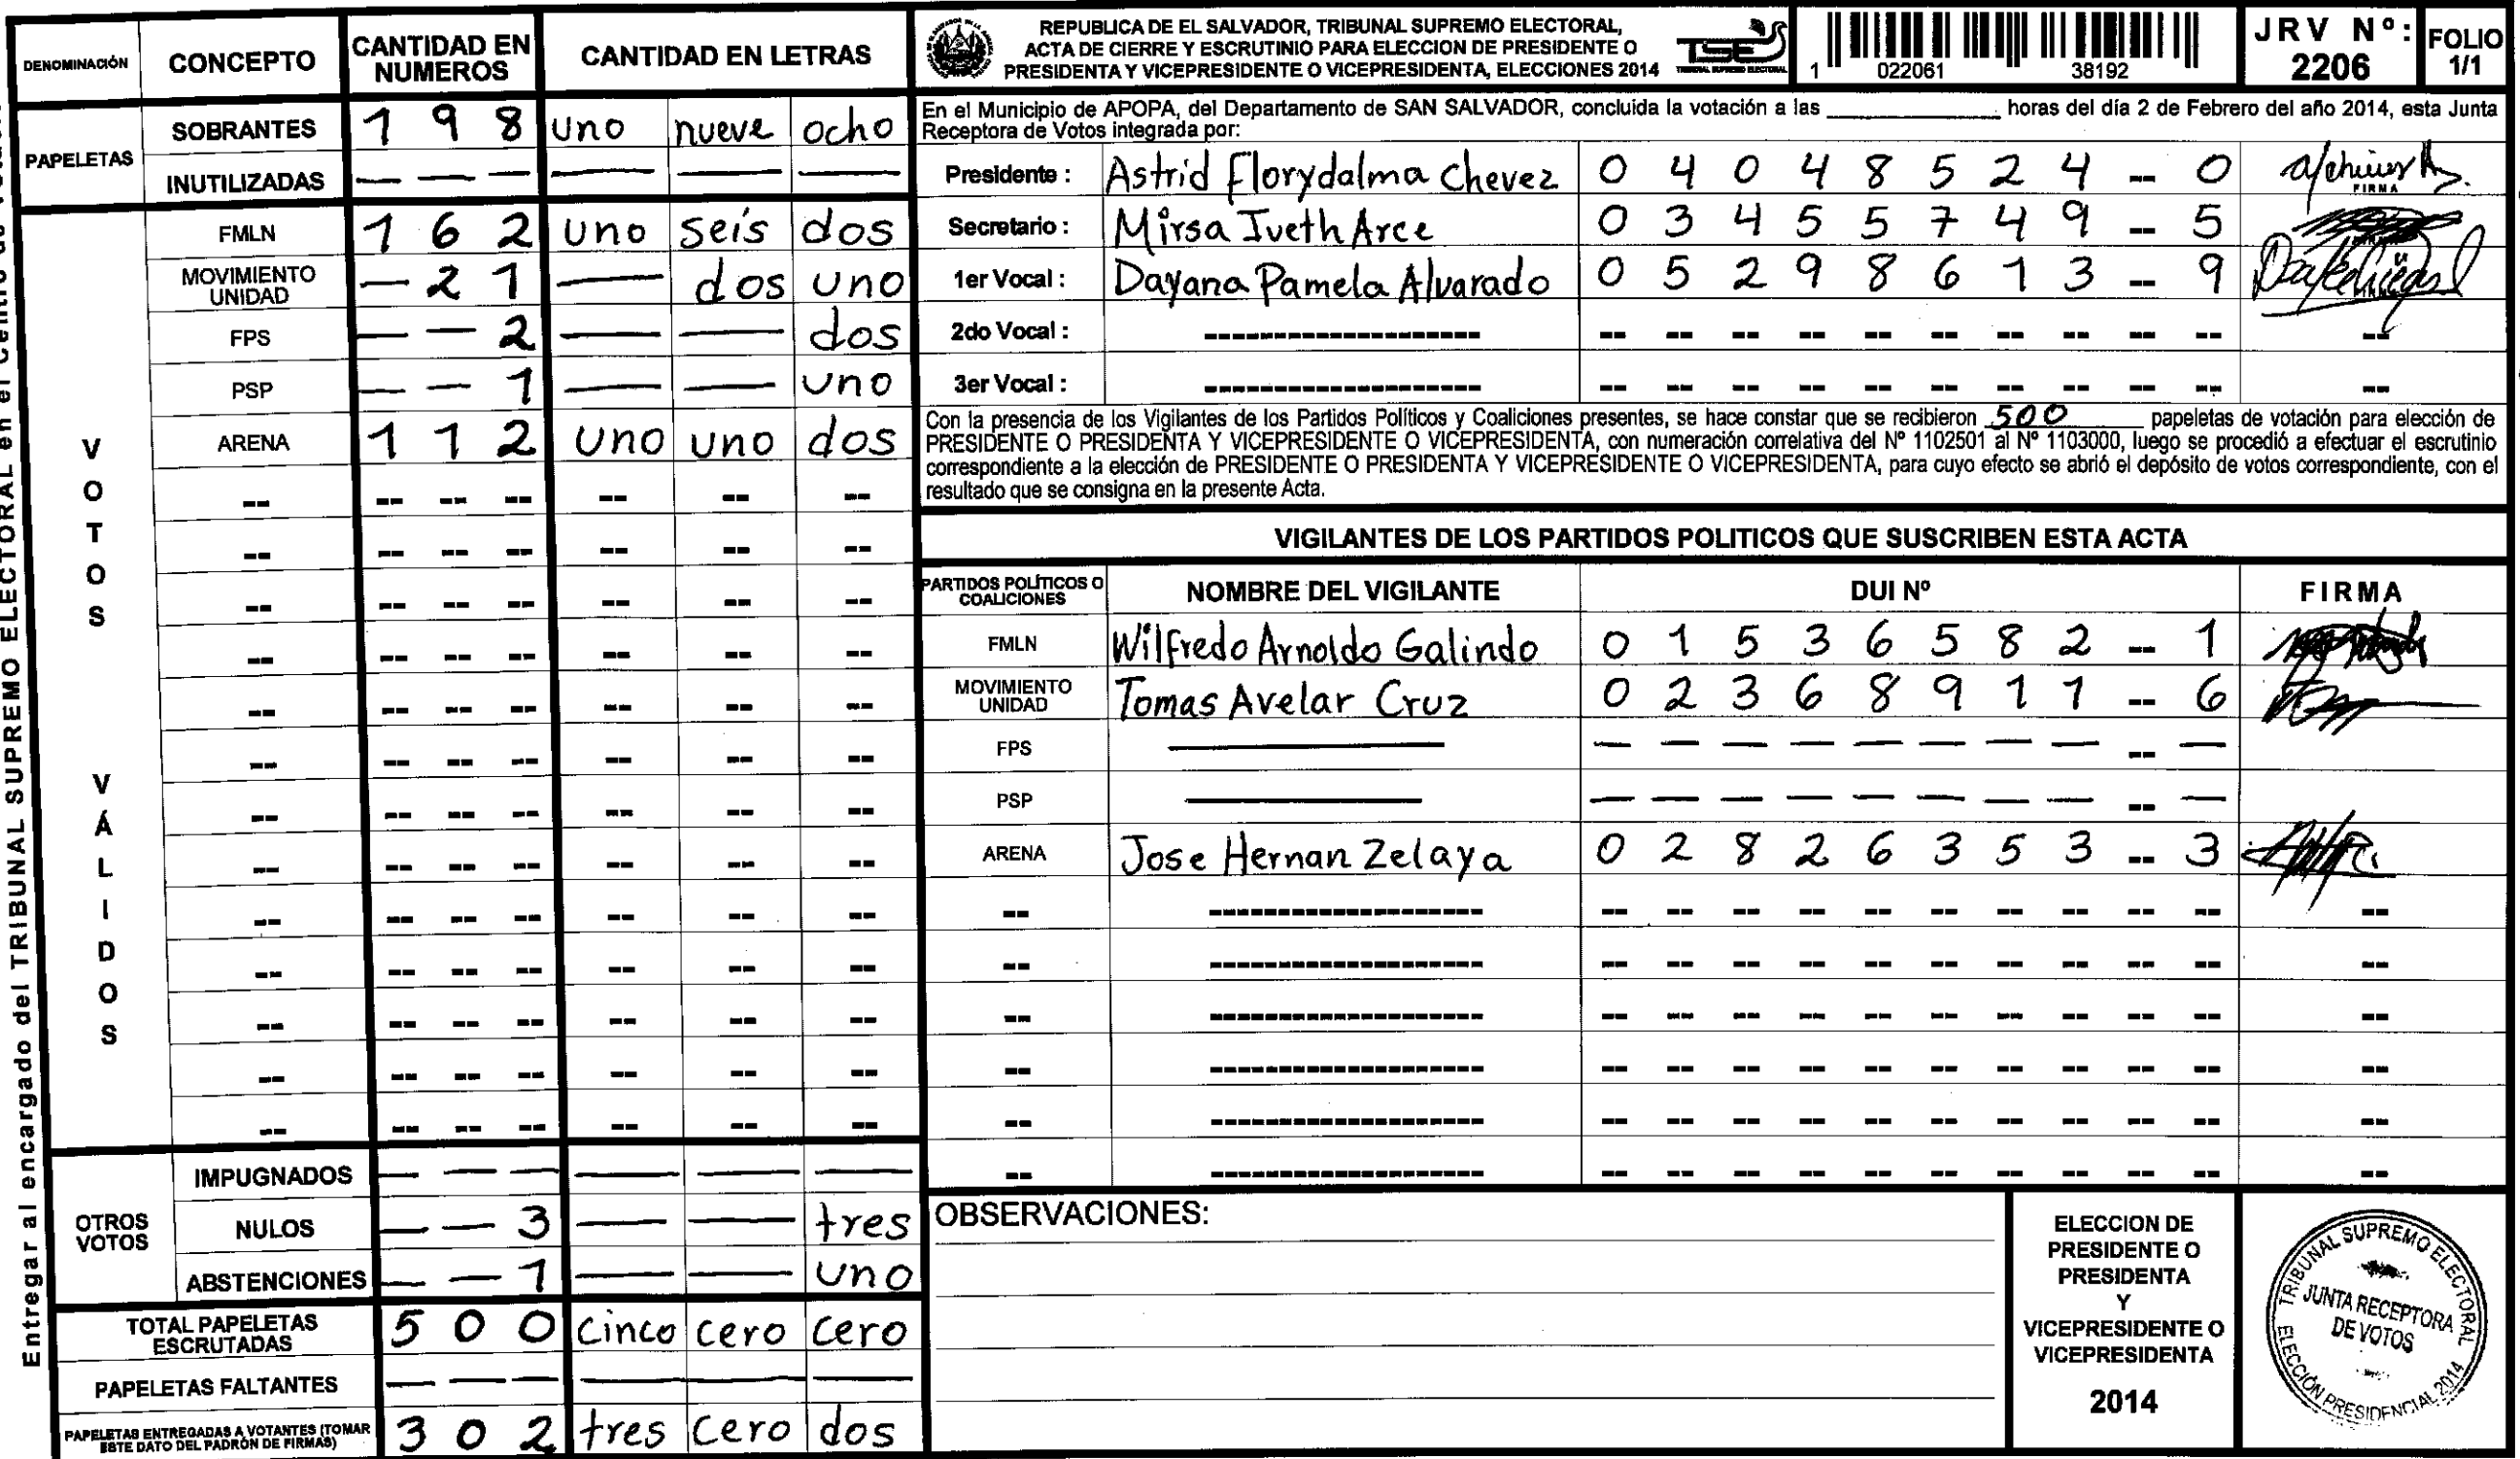 Entregar al encargado del TRIBUNAL SUPREMO ELECTORAL en el Centro de
DENOMINACIÓN CONCEPTO CANTIDAD EN NUMEROS CANTIDAD EN LETRAS
PAPELETAS
SOBRANTES 1 9 8 uno nueve ocho
INUTILIZADAS — — — — — —
VOTOS VÁLIDOS
FMLN 1 6 2 uno seis dos
MOVIMIENTO UNIDAD — 2 1 — dos uno
FPS — — 2 — — dos
PSP — — 1 — — uno
ARENA 1 1 2 uno uno dos
-- -- -- -- -- -- --
-- -- -- -- -- -- --
-- -- -- -- -- -- --
-- -- -- -- -- -- --
-- -- -- -- -- -- --
-- -- -- -- -- -- --
-- -- -- -- -- -- --
-- -- -- -- -- -- --
-- -- -- -- -- -- --
-- -- -- -- -- -- --
-- -- -- -- -- -- --
-- -- -- -- -- -- --
-- -- -- -- -- -- --
OTROS VOTOS
IMPUGNADOS — — — — — —
NULOS — — 3 — — tres
ABSTENCIONES — — 1 — — uno
TOTAL PAPELETAS ESCRUTADAS 5 0 0 cinco cero cero
PAPELETAS FALTANTES — — — — — —
PAPELETAS ENTREGADAS A VOTANTES (TOMAR ESTE DATO DEL PADRÓN DE FIRMAS) 3 0 2 tres cero dos
REPUBLICA DE EL SALVADOR, TRIBUNAL SUPREMO ELECTORAL,
ACTA DE CIERRE Y ESCRUTINIO PARA ELECCION DE PRESIDENTE O
PRESIDENTA Y VICEPRESIDENTE O VICEPRESIDENTA, ELECCIONES 2014
TSE
TRIBUNAL SUPREMO ELECTORAL
1 022061 38192
JRV Nº: 2206
FOLIO 1/1
En el Municipio de APOPA, del Departamento de SAN SALVADOR, concluida la votación a las ______ horas del día 2 de Febrero del año 2014, esta Junta
Receptora de Votos integrada por:
Presidente : Astrid Florydalma Chevez 0 4 0 4 8 5 2 4 -- 0 FIRMA
Secretario : Mirsa Iveth Arce 0 3 4 5 5 7 4 9 -- 5
1er Vocal : Dayana Pamela Alvarado 0 5 2 9 8 6 1 3 -- 9
2do Vocal : -------------------- -- -- -- -- -- -- -- -- -- -- --
3er Vocal : -------------------- -- -- -- -- -- -- -- -- -- -- --
Con la presencia de los Vigilantes de los Partidos Políticos y Coaliciones presentes, se hace constar que se recibieron 500 papeletas de votación para elección de
PRESIDENTE O PRESIDENTA Y VICEPRESIDENTE O VICEPRESIDENTA, con numeración correlativa del Nº 1102501 al Nº 1103000, luego se procedió a efectuar el escrutinio
correspondiente a la elección de PRESIDENTE O PRESIDENTA Y VICEPRESIDENTE O VICEPRESIDENTA, para cuyo efecto se abrió el depósito de votos correspondiente, con el
resultado que se consigna en la presente Acta.
VIGILANTES DE LOS PARTIDOS POLITICOS QUE SUSCRIBEN ESTA ACTA
PARTIDOS POLÍTICOS O COALICIONES NOMBRE DEL VIGILANTE DUI Nº FIRMA
FMLN Wilfredo Arnoldo Galindo 0 1 5 3 6 5 8 2 -- 1
MOVIMIENTO UNIDAD Tomas Avelar Cruz 0 2 3 6 8 9 1 1 -- 6
FPS — — — — — — — — — -- —
PSP — — — — — — — — — -- —
ARENA Jose Hernan Zelaya 0 2 8 2 6 3 5 3 -- 3
-- -------------------- -- -- -- -- -- -- -- -- -- -- --
-- -------------------- -- -- -- -- -- -- -- -- -- -- --
-- -------------------- -- -- -- -- -- -- -- -- -- -- --
-- -------------------- -- -- -- -- -- -- -- -- -- -- --
-- -------------------- -- -- -- -- -- -- -- -- -- -- --
-- -------------------- -- -- -- -- -- -- -- -- -- -- --
OBSERVACIONES:
ELECCION DE
PRESIDENTE O
PRESIDENTA
Y
VICEPRESIDENTE O
VICEPRESIDENTA
2014
TRIBUNAL SUPREMO ELECTORAL
JUNTA RECEPTORA
DE VOTOS
ELECCIÓN PRESIDENCIAL 2014